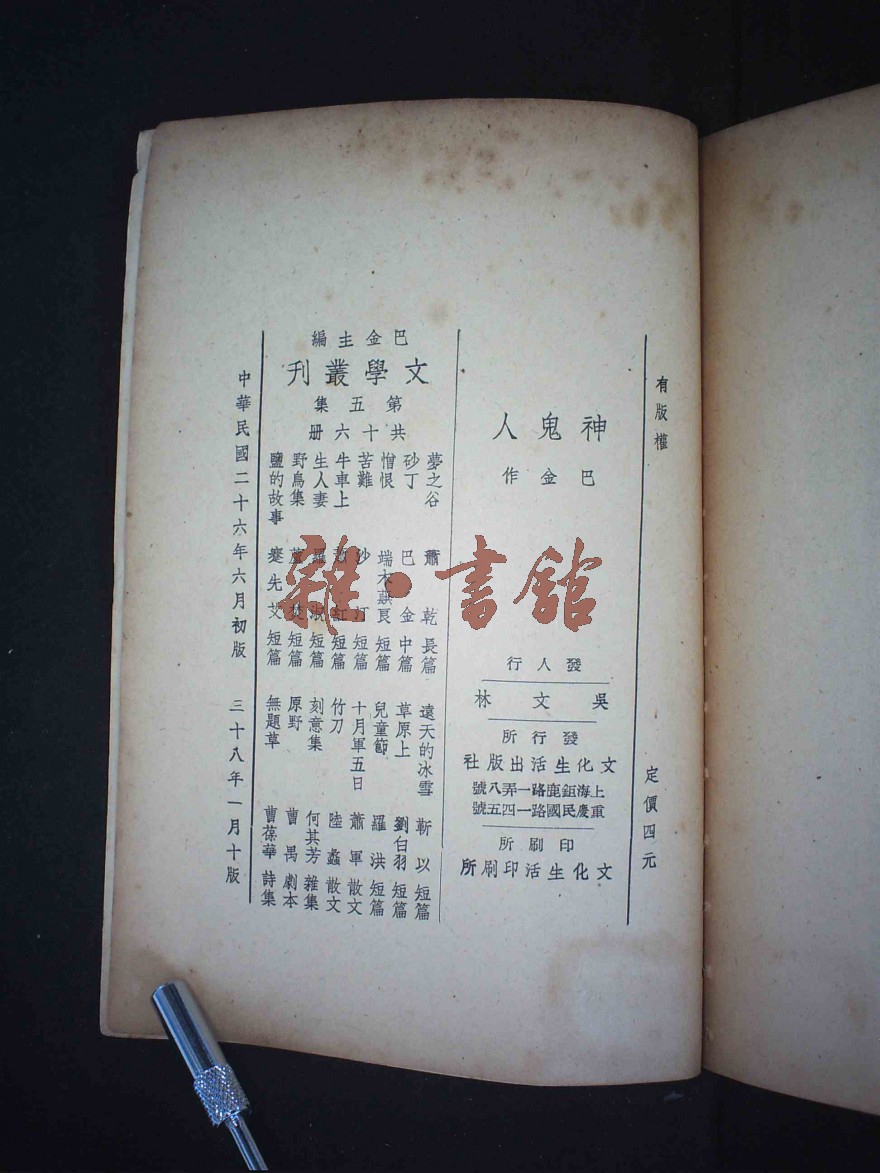 有版權 定價四元
神鬼人
巴金作
發行人
吳文林
發行所
文化生活出版社
上海鉅鹿路一弄八號
重慶民國路一四五號
印刷所
文化生活印刷所
巴金主編
文學叢刊
第五集
共十六册
夢之谷 蕭乾 長篇 遠天的冰雪 靳以 短篇
砂丁 巴金 中篇 草原上 劉白羽 短篇
憎恨 端木蕻良 短篇 兒童節 羅洪 短篇
苦難 沙汀 短篇 十月軍五日 蕭軍 散文
牛車上 紅 短篇 竹刀 陸蠡 散文
生人妻 羅淑 短篇 刻意集 何其芳 雜集
野鳥集 蘆焚 短篇 原野 曹禺 劇本
鹽的故事 蹇先艾 短篇 無題草 曹葆華 詩集
中華民國二十六年六月初版 三十八年一月十版
雜·書館